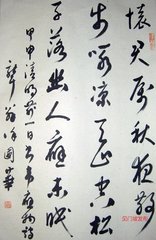 懷君屬秋夜散
步咏凉天山空松
子落幽人應未眠
甲申清明前一日書韋應物詩
國華